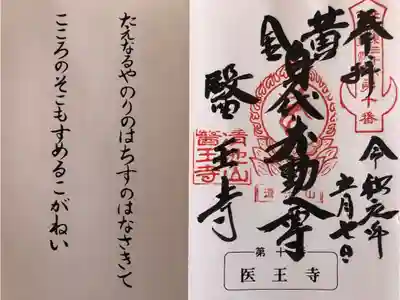 奉拝
令和元年
月七日
黄金
身代不動尊
醫王寺
醫王寺
第十
医王寺
たえなるやのりのはちすのはなさきて
こころのそこもすめるこがねい